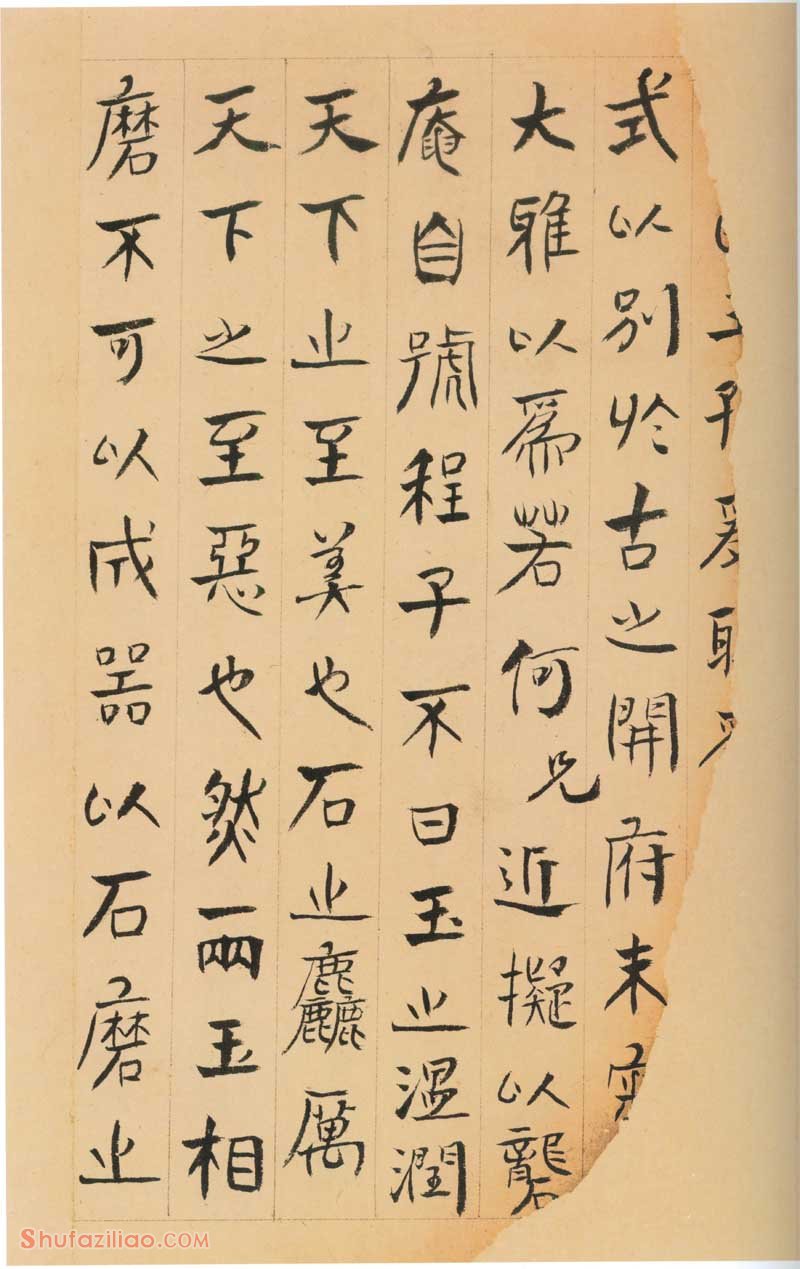 式以別於古之開府未審
大雅以爲若何兄近擬以礱
庵自號程子不曰玉之溫潤
天下之至美也石之麤厲
天下之至惡也然兩玉相
磨不可以成器以石磨之
Shufaziliao.COM